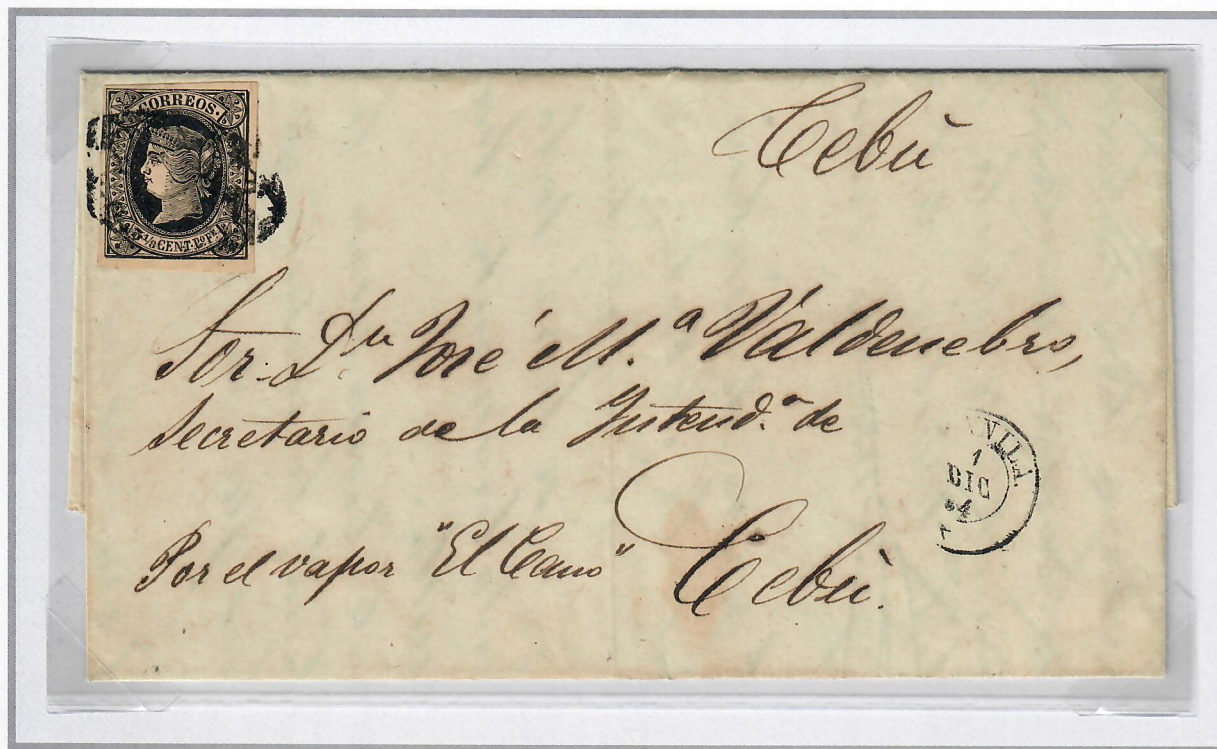 CORREOS
3 1/8 CENT. Po Fe
Cebù
Sor. Dn José M.ª Valdenebro,
Secretario de la Intend.ª de
Cebù.
Por el vapor "El Cano"
NILA
1
DIC
64